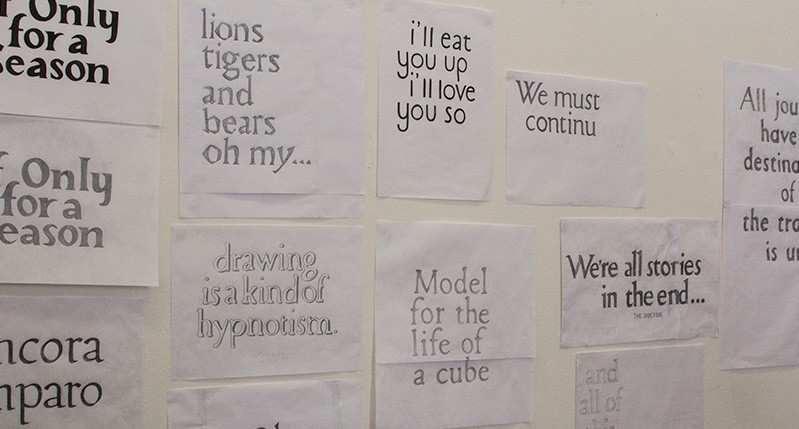 Only
for a
season
lions
tigers
and
bears
oh my...
i'll eat
you up
i'll love
you so
We must
continu
All jou
have
destina
of
the tra
is u
Only
for a
eason
drawing
is a kind of
hypnotism.
Model
for the
life of
a cube
We're all stories
in the end...
THE DOCTOR.
ncora
mparo
and
all of